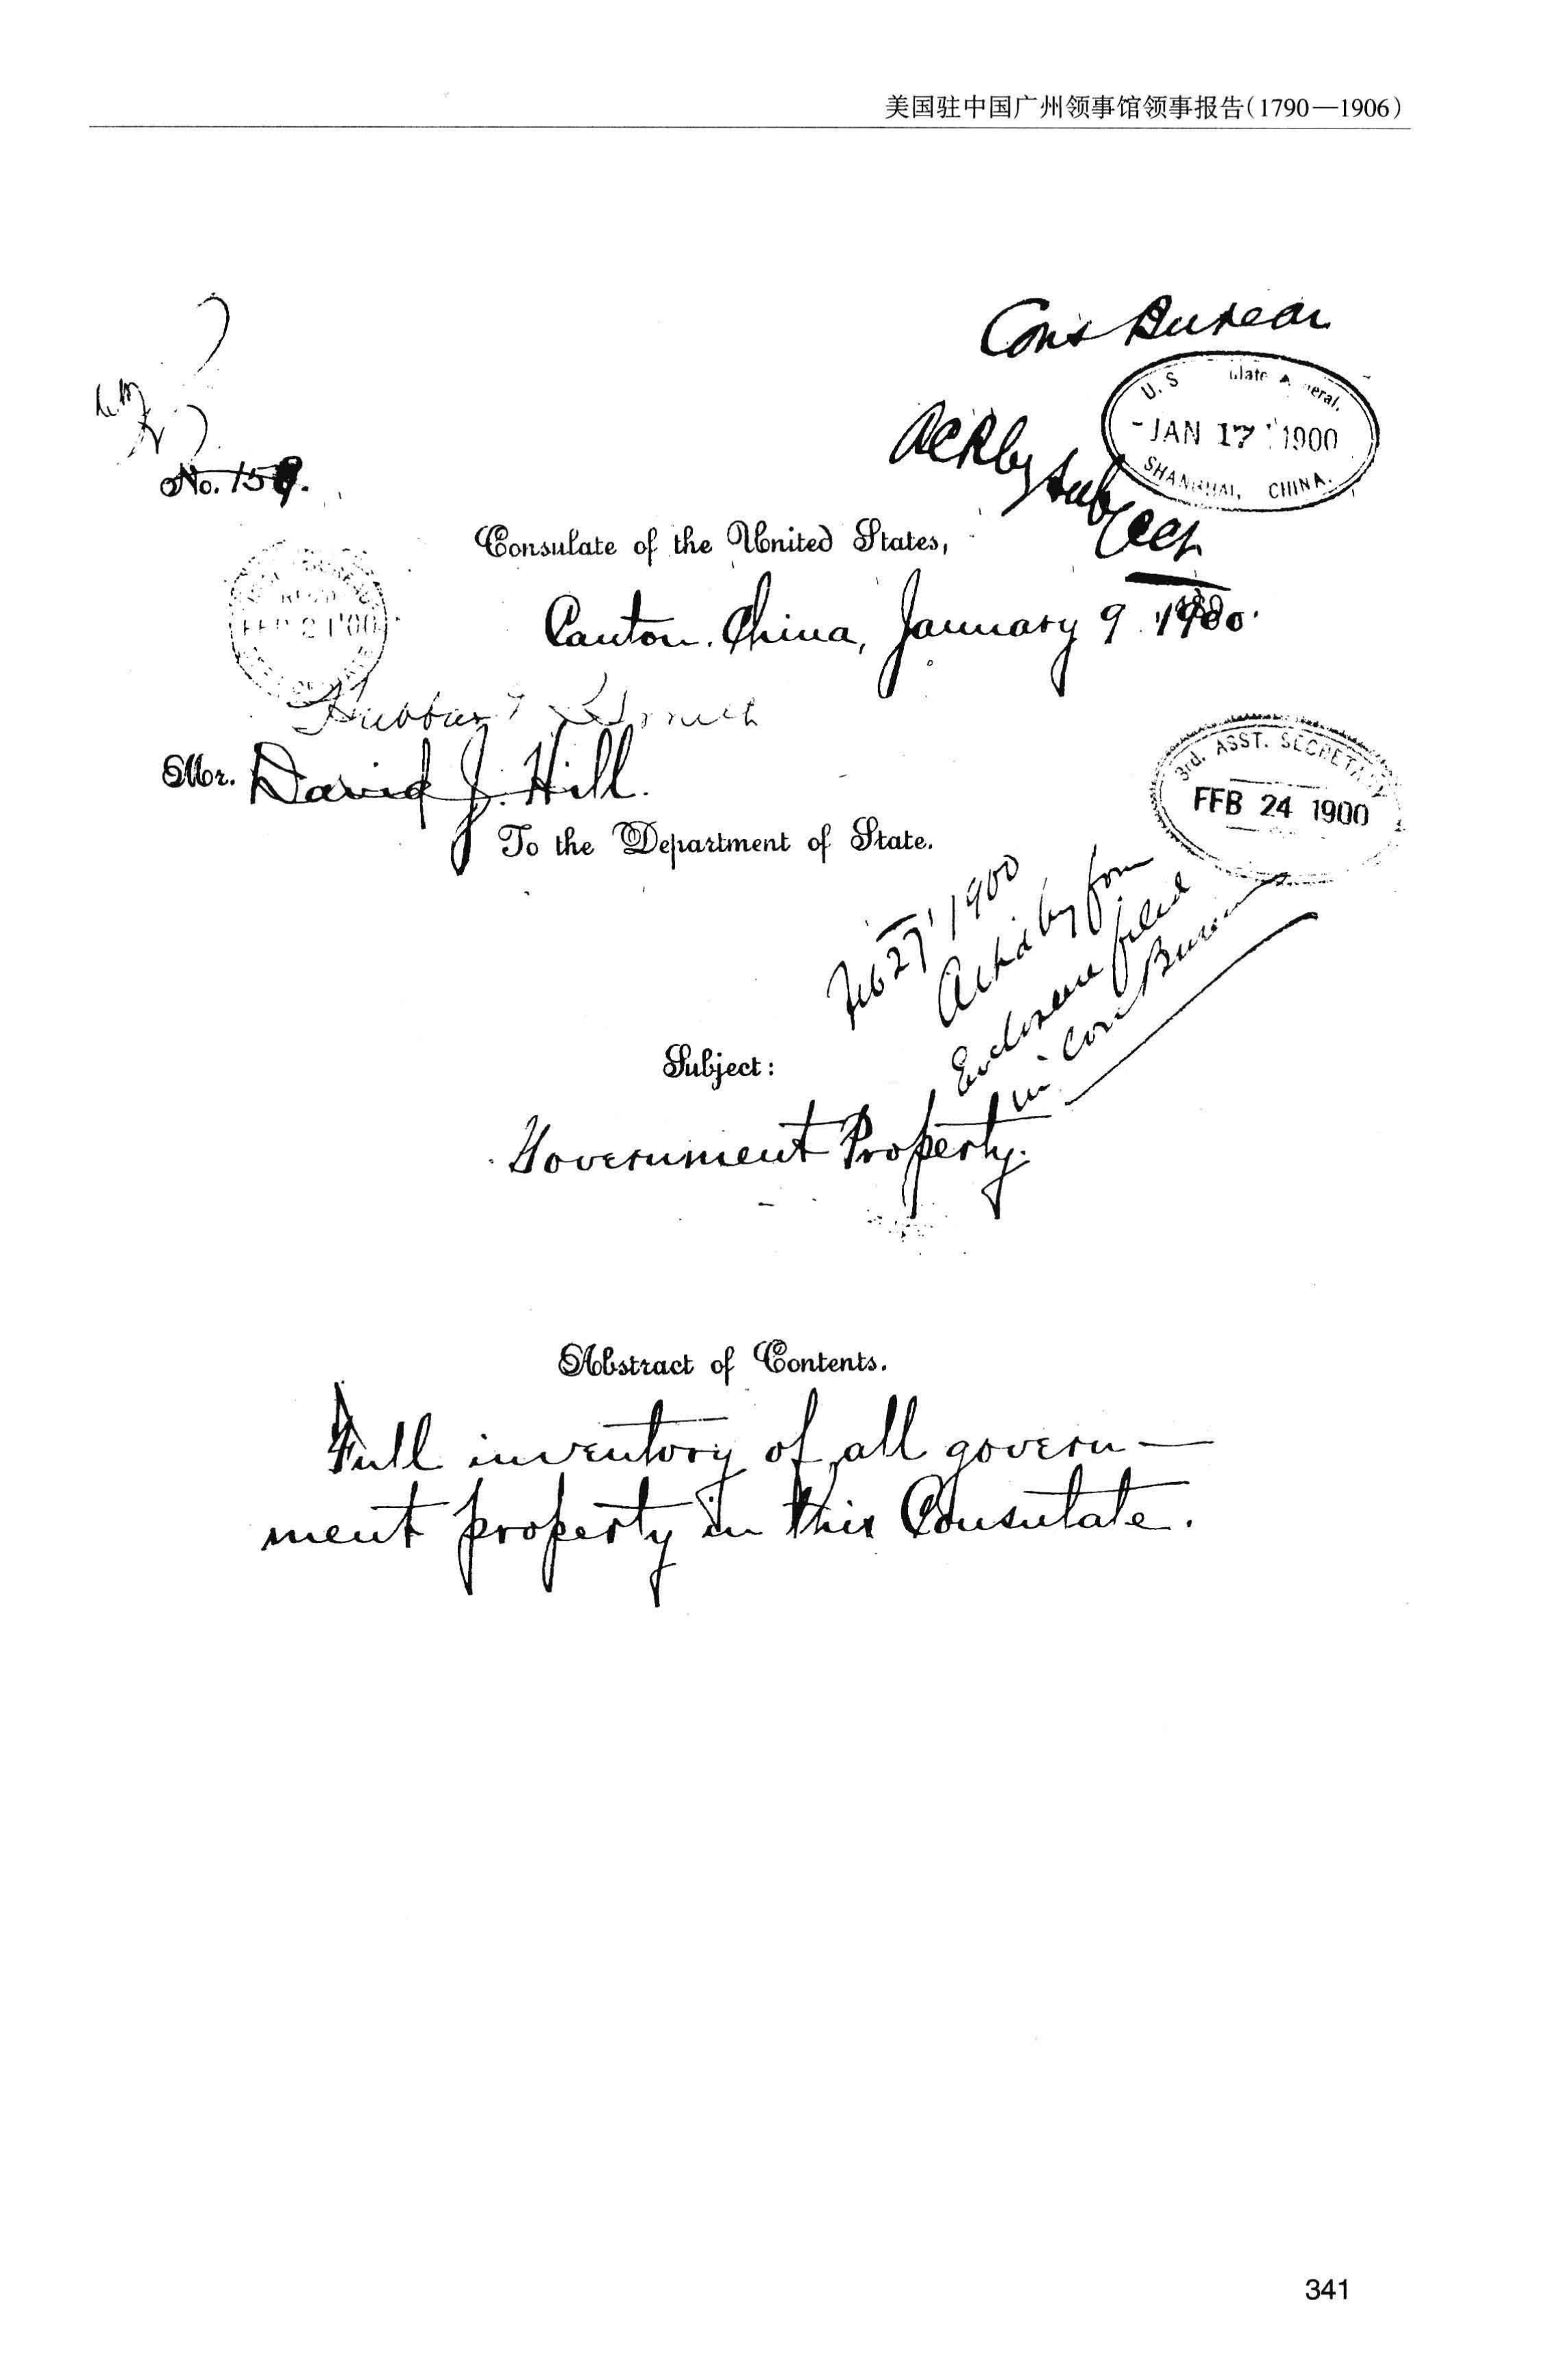 美国驻中国广州领事馆领事报告(1790—1906)
Cons Bureau
U. S
JAN 17 1900
SHANGHAI, CHINA.
Ack by subject
No. 159.
Consulate of the United States,
Canton. China, January 9 1900.
FEB 21 '00
Hubbard
Mr. David J. Hill.
To the Department of State.
3rd. ASST. SECRETARY
FEB 24 1900
Feb 27, 1900
Ack'd by form
Enclosure filed
in Con Bureau
Subject:
Government Property.
Abstract of Contents.
Full inventory of all govern-
ment property in this Consulate.
341